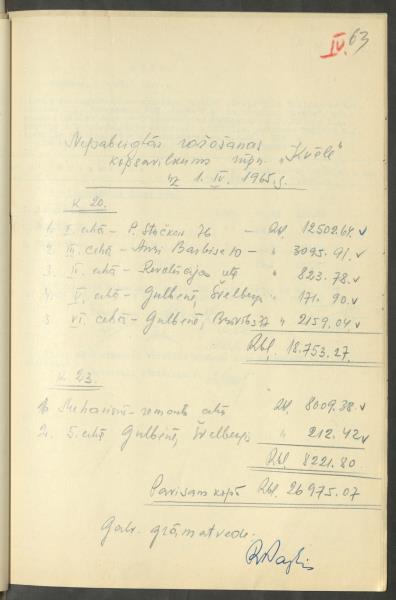 IV. 63
Nepabeigtās ražošanas
kopsavilkums rūpn. „Kvēle"
uz 1. IV. 1965 g.
K 20.
1. I. cehā – P. Stučkas 76 – Rbl. 12502.64. v
2. III. cehā – Anri Barbisa 10 – " 3095.91. v
3. IV. cehā – Revolūcijas " 823.78. v
4. V. cehā – Gulbenē, " 171.90. v
5. VI. cehā – Gulbenē, 37 " 2159.04 v
Rbl. 18.753.27.
K 23.
1. Mehaniski-remonta cehā Rbl. 8009.38. v
2. 5. cehā Gulbenē, " 212.42 v
Rbl. 8221.80.
Pavisam kopā Rbl. 26975.07
Galv. grāmatvede: